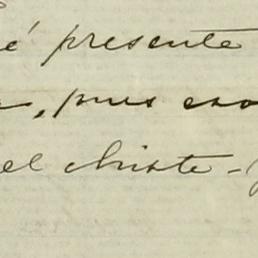 é presente
, pues eso
el chiste -